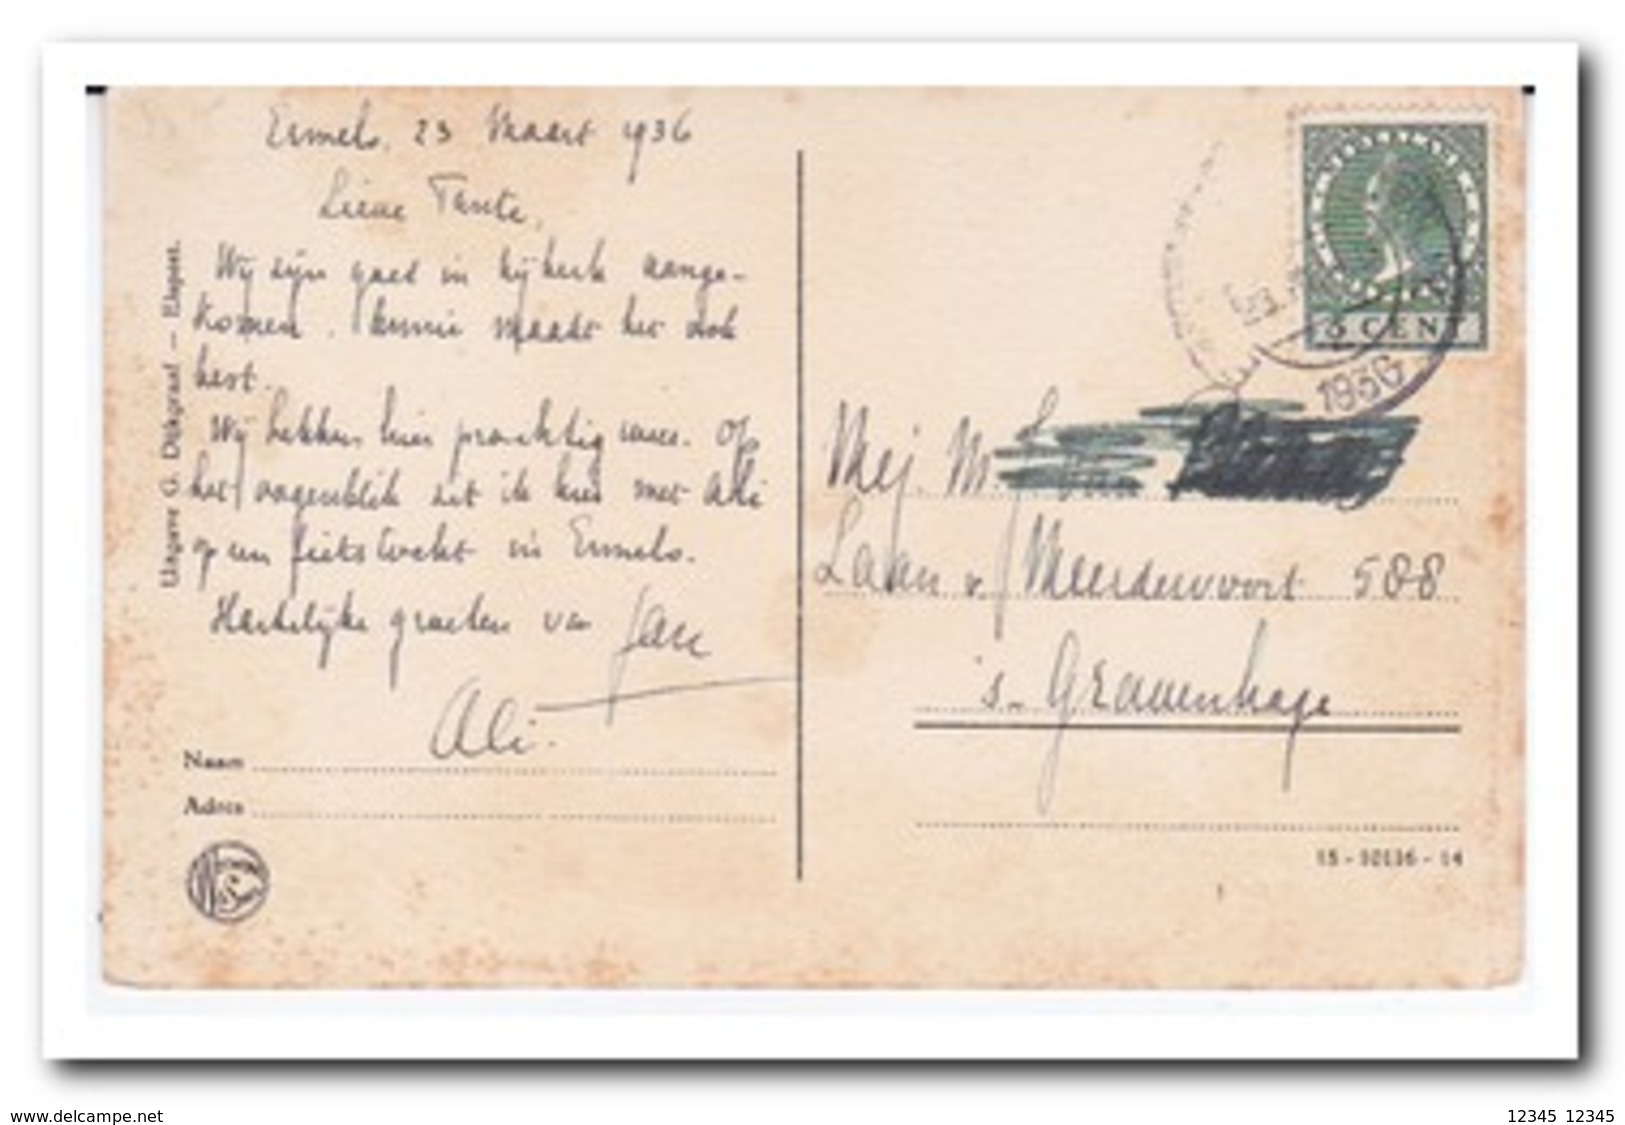 Ermelo, 23 Maart 1936
Lieve Tante,
Wij zijn goed in Nijkerk aange-
komen. maakt het ook
best.
Wij hebben hier prachtig weer. Op
het oogenblik zit ik hier met Ali
op een fietstocht in Ermelo.
Hartelijke groeten van Jan
Ali.
Naam
Adres
Uitgave G. Dijkgraaf — Elspeet.
5 CENT
1936
Mej. M.
Laan v. Meerdervoort 588
's-Gravenhage
15-10136-14
www.delcampe.net
12345 12345